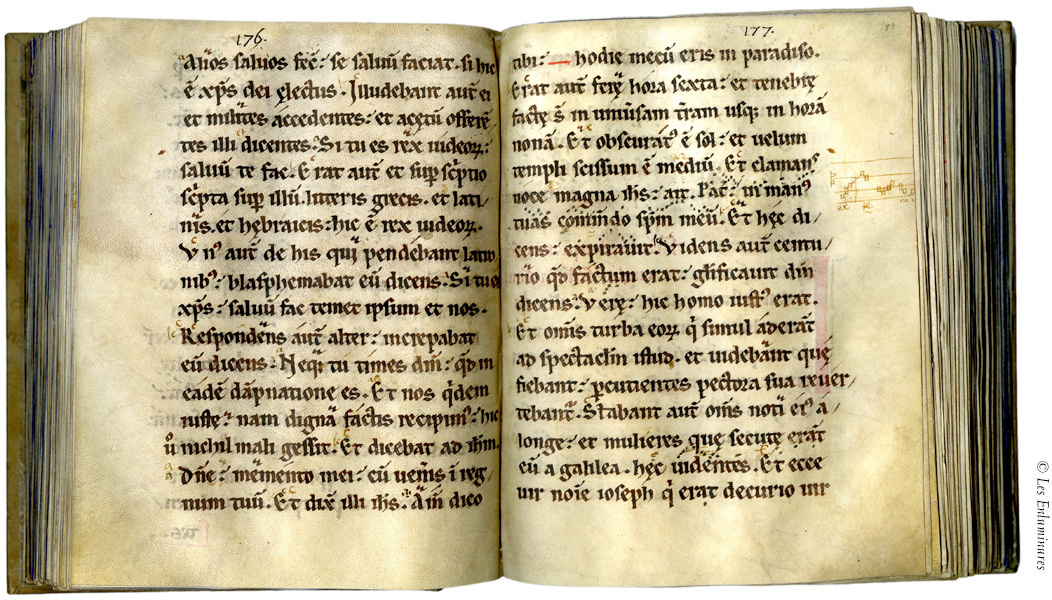 176.
Alios saluos fec̄: se saluū faciat. si hic
ē xp̄s dei ęlectus. Illudebant autē ei
et milites accedentes: et acętū offerē
tes illi dicentes. Si tu es rex iudeoꝝ:
saluū te fac. Erat autē et sup sc̄ptio
sc̄pta sup illū. litteris grecis. et lati
nis. et hebraicis: hic ē rex iudeoꝝ.
Vnꝰ autē de his qui pendebant latro
nibꝰ: blasphemabat eū dicens. Si tu
xp̄s: saluū fac temet ipsum et nos.
Respondens autē alter: increpabat
eū dicens. Neqꝫ tu times dm̄: qd̄ in
eadē dāpnatione es. Et nos qͥdem
iuste: nam digna factis recipimꝰ: hic
ů nichil mali gessit. Et dicebat ad ih̄m.
Dn̄e: memento mei: cū uenis ī reg
num tuū. Et dix̄ illi ih̄s. Am̄ dico
177.
tibi: hodie mecū eris in paradiso.
Erat autē ferię hora sexta: et tenebrę
factę s̄ in uniūsam t̄ram usqꝫ in horā
nonā. Et obscuratꝰ ē sol: et uelum
templi scissum ē mediū. Et clamans
uoce magna ih̄s: ait. Pat̄: in manꝰ
tuas cōmendo sp̄m meū. Et hęc di/
cens: expirauit. Videns autē centu/
rio qd̄ factum erat: gl̄ificauit dm̄
dicens. Verę: hic homo iustꝰ erat.
Et om̄is turba eoꝝ qͥ simul aderāt
ad spectaclm̄ istud. et uidebant quę
fiebant: ꝑcutientes pectora sua reuer/
tebant̄. Stabant autē om̄s noti eiꝰ a/
longe: et mulieres quę secutę erāt
eū a galilea. hęc uidentes. Et ecce
uir noīe ioseph qͥ erat decurio uir
© Les Enluminures